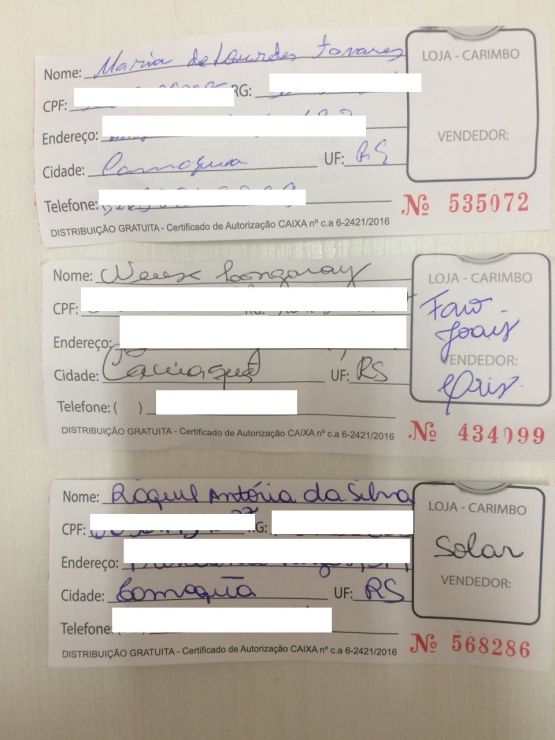 Nome: Maria de Lourdes Tavares
LOJA - CARIMBO
CPF: RG:
Endereço:
VENDEDOR:
Cidade: Camaquã UF: RS
Telefone:
Nº 535072
DISTRIBUIÇÃO GRATUITA - Certificado de Autorização CAIXA nº c.a 6-2421/2016
Nome: Longaray
LOJA - CARIMBO
CPF: RG:
Endereço:
VENDEDOR:
Cidade: Camaquã UF: RS
Telefone: ( )
Nº 434099
DISTRIBUIÇÃO GRATUITA - Certificado de Autorização CAIXA nº c.a 6-2421/2016
Nome: Raquel Antória da Silva
LOJA - CARIMBO
CPF: RG:
Solar
Endereço:
VENDEDOR:
Cidade: Camaquã UF: RS
Telefone:
Nº 568286
DISTRIBUIÇÃO GRATUITA - Certificado de Autorização CAIXA nº c.a 6-2421/2016